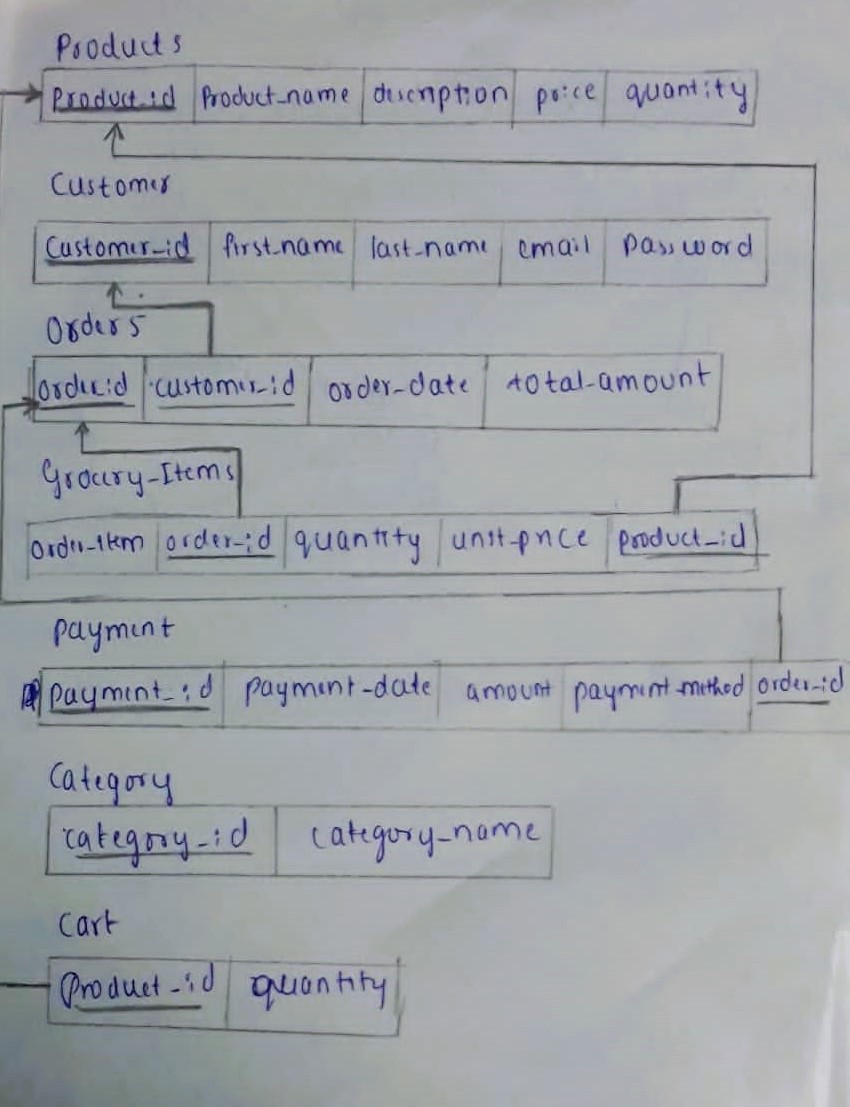 Products
Product_id Product_name discription price quantity
Customer
Customer_id first_name last_name email password
Orders
order_id customer_id order_date total_amount
Grocery_Items
order_item order_id quantity unit_price product_id
payment
payment_id payment_date amount payment_method order_id
Category
category_id category_name
Cart
Product_id quantity